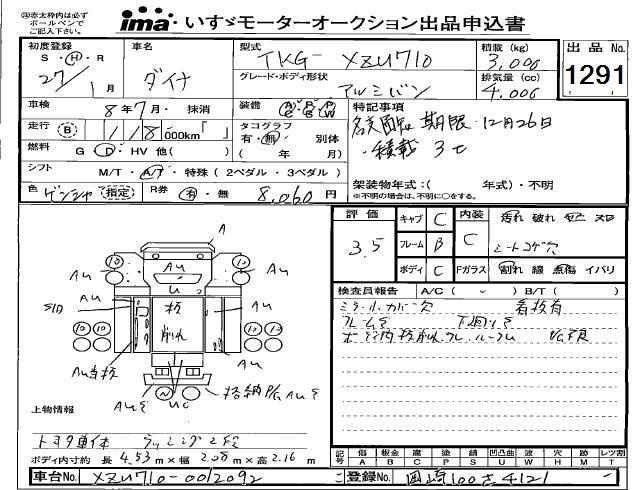 ㊟赤太枠内は必ず
ボールペンで
ご記入下さい。
ima いすゞモーターオークション出品申込書
初度登録
S・H・R
27年1月
車名
ダイナ
型式
TKG- XZU710
グレード・ボディ形状
アルミバン
積載 (kg)
3,000
排気量 (cc)
4,000
出品No.
1291
車検
8年7月・抹消
走行
B 118,000km「 」
燃料
G・D・HV 他( )
シフト
M/T・A/T・特殊(2ペダル・3ペダル)
色
ゲンシャ 指定
R券
有・無 8,060円
装備
A/C P/S P/W
タコグラフ
有・無・別体
( 年 月)
特記事項
名変期限 12月26日
・積載 3t
架装物年式:( 年式)・不明
※不明の場合は、不明に○をする。
評価
3.5
キャブ C
フレーム B
ボディ C
内装
C
Fガラス
汚れ 破れ ヤニ スレ
シートコゲ穴
割れ 線 点傷 イバリ
検査員報告 A/C( ) B/T( )
ミラー小カバー欠 看板有
フレームサ 下回りサ
A
Au
U
板
削れ
SID
Au看板
Auサ
UC
格納P/G Auサ
上物情報
トヨタ車体 ラッシング2段
ボディ内寸約 長 4.53 m×幅 2.08 m×高 2.16 m
記号 傷 A 板金 B 腐 C 塗 P サビ S 凹凸曲 U 波 W 穴 H 跡 M レツ割 T
車台No. XZU710-0012092
登録No. 岡崎100さ4121